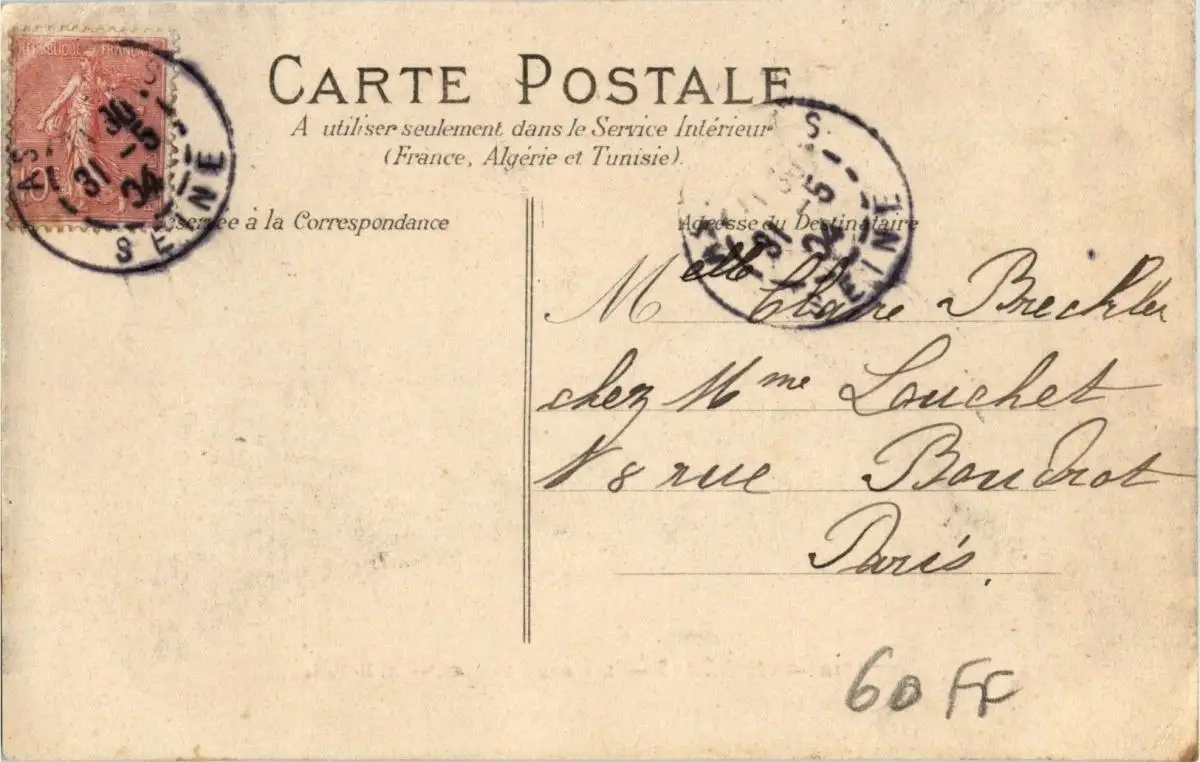 RÉPUBLIQUE FRANÇAISE
10
AS
S
30
31 -5
04
SEINE
CARTE POSTALE
A utiliser seulement dans le Service Intérieur
(France, Algérie et Tunisie).
à la Correspondance
Adresse du Destinataire
S
31 -5
SEINE
Melle Claire Breckler
chez Mme Louchet
N 8 rue Boudrot
Paris.
60 FF